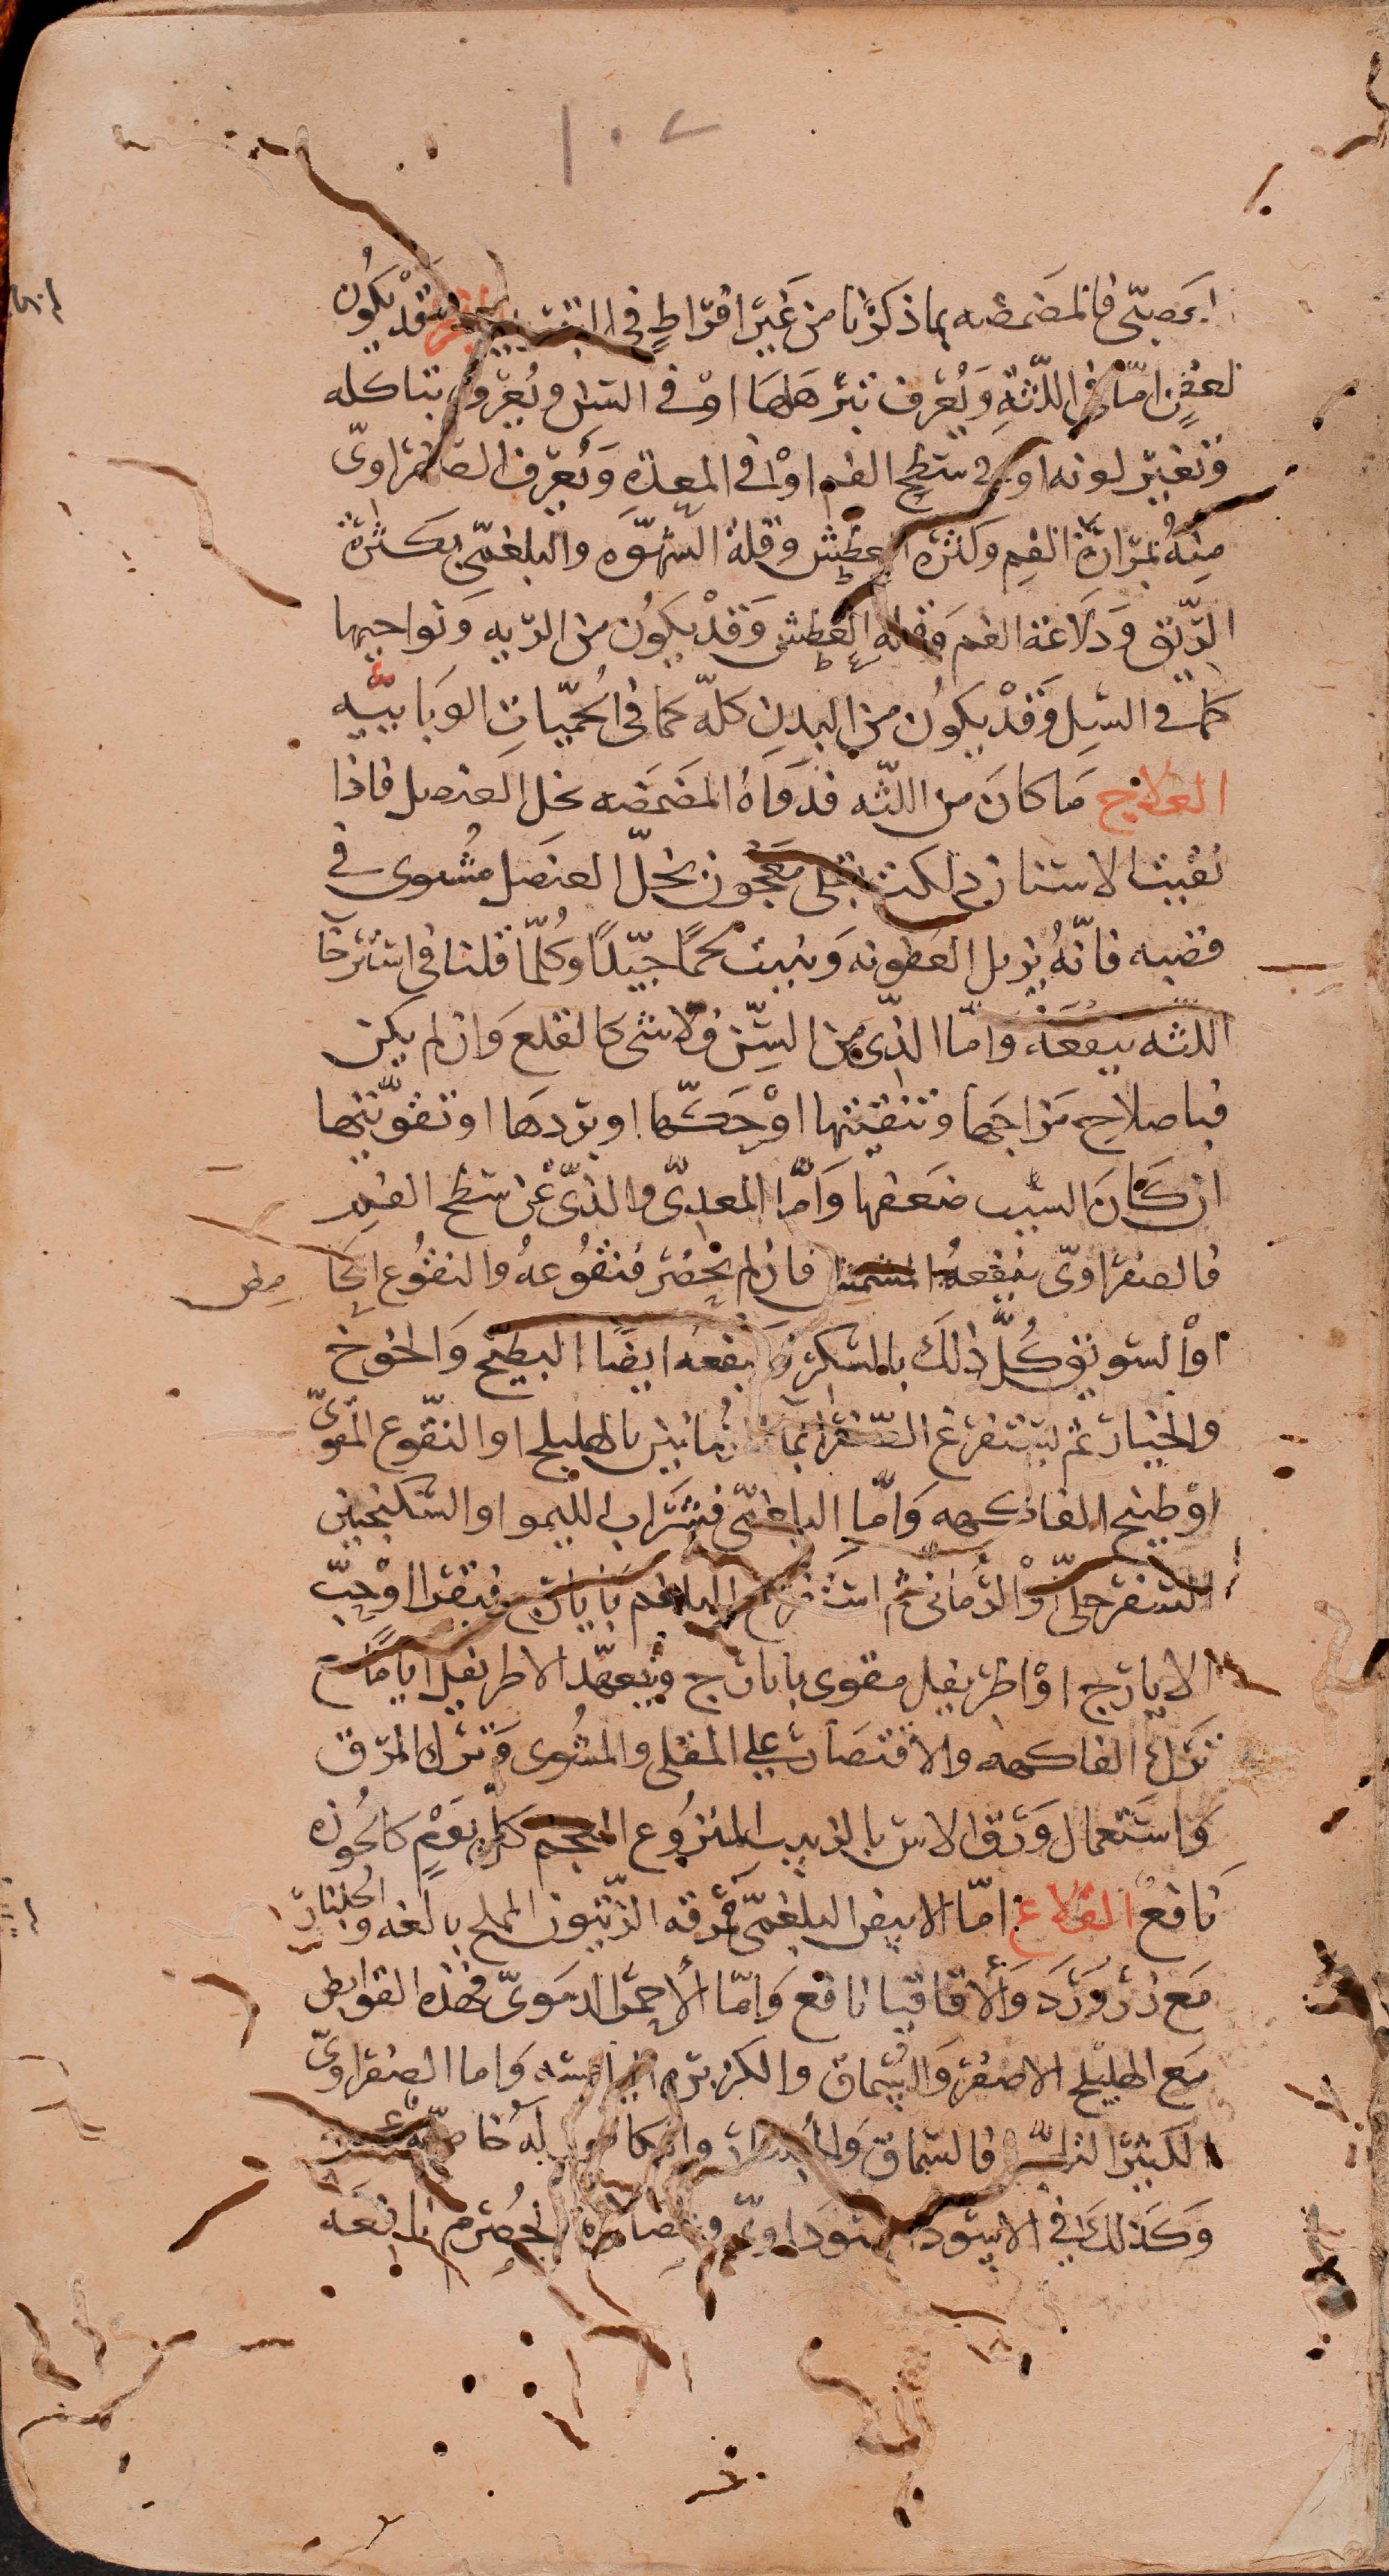 ١٠٧
او عصبى فالمضمضه بما ذكرنا من غير افراط فى التبريد البخر قد يكون
لعفن امّا فى اللثة ويُعرف بترهلها او فى السن ويُعرف بتاكله
وتغير لونه او فى سطح الفم او فى المعدة ويُعرف الصفراوىّ
منه بمرارة الفم وكثره العطش وقلة الشهوه والبلغمى بكثرة
الريق ودلاعة الفم وقله العطش وَقدْ يكوُن من الريه ونواحيها
كما فى السل وَقدْ يكوُن من البدن كلّه كما فى الحميّات الوبايّيه
العلاج مَا كانَ من اللثه فدَواهُ المضمضه بخل العنصل فاذا
نقيت الاسنان دلكت بخل معجون بخلّ العنصل مشوى فى
قصبه فانّهُ يزيل العفونه وَينبت لحمًا جيّدًا وكُلمّا قلنا فى استرخا
اللثه ينفعَهُ وامّا الذى من السّن فلا شى كالقلع وَان لم يكن
فباصلاح مزاجها وتنقيتها اوْ حكّها او بردهَا او تقويّتها
ان كَانَ السبب ضعفها وَامّا المعدىّ والذىّ عن سطح الفم
فالصفراوىّ ينفعهُ المشمش فان لم يحضر فنقُوعهُ والنقُوع الحا
مض
اوْ السويق كُلّ ذلكَ بالسكر وينفعه ايضًا البطيخ وَالخوخ
والخيار ثم يستفرغ الصّفرا بما الرمانين بالهليلج او النقّوع المقوىّ
اوْ طبيخ الفاكهه وَامّا البلغمى فشرَاب الليمو او السكنجبين
السفرجلىّ اوْ الرُمانى ثم استفرغ البلغم بايارج فيقرا اوْ حبّ
الايارج اوْ اطريفل مقوى بايارج ويتعهّد الاطريفل ايامًا مع
ترَك الفاكهه والاقتصَار على المقلى والمشُوى وَترك المرَق
وَاستعمال وَرَق الاس بالزبيب المنزُوع العجم كلّ يوَم كالجوزه
نافعٌ القلاع امّا الابيض البلغمىّ فمرقه الزيتون المملح بالغه والجلنار
مَع زر وَرَد وَالاقاقيا نافع وَامّا الاحمَر الدمَوىّ فهذه القوابض
مَع الهليلج الاصفر وَالسّماق والكزبره اليابسه وَاما الصفراوىّ
الكثير اللهيب فالسّماق وَالكافور لَه خاصيّه
وَكَذلك فى الاسوَد السّودَاوىّ وعصَارة الحصُرم نافعَه